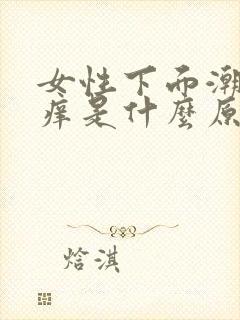 女性下而潮
痒是什麼原
焓淇